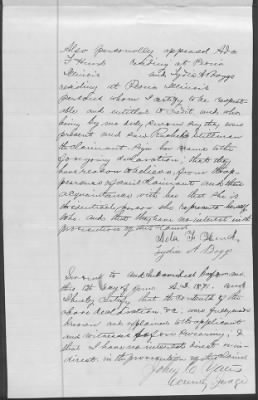 Also personally appeared Ada
F Hurd residing at Peoria
Illinois and Lydia A Boggs
residing at Peoria Illinois
persons whom I certify to be respect-
able and entitled to credit and who
being by me duly sworn say they were
present and saw
the claimant sign her name to the
foregoing declaration; that they
have reason to believe from the ap-
pearance of said claimant and their
acquaintance with her that she is
the identical person she represents herself
to be and that they have no interest in the
prosecution of this claim
Ada F Hurd
Lydia A. Boggs
Sworn to and subscribed before me
this day of June A.D. 1891. and
I hereby certify that the contents of the
above declaration &c. were fully made
known and explained to the applicant
and witnesses before swearing, &
that I have no interest direct or in-
direct in the prosecution of this claim
John C. Yates
County Judge